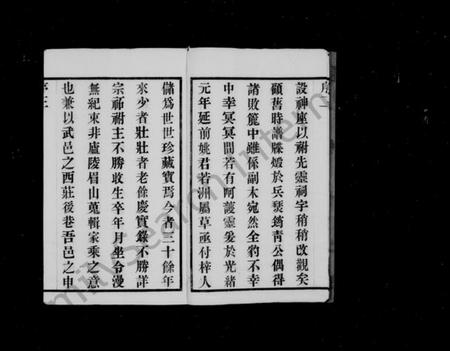 序二
設神座以祔先靈祠宇稍稍改觀矣
顧舊時譜牒燬於兵燹鎸靑公偶得
諸敗簏中雖係副本宛然全豹不幸
中幸冥冥間若有阿護靈爰於光緒
元年延前姚君若洲屬草亟付梓人
儲爲世世珍藏寶焉今者三十餘年
來少者壯壯者老餘慶實錄不勝詳
宗祔祔主不勝收生卒年月坐令漫
無紀柬非廬陵眉山蒐輯家乘之意
也兼以武邑之西莊後巷吾邑之申
序三